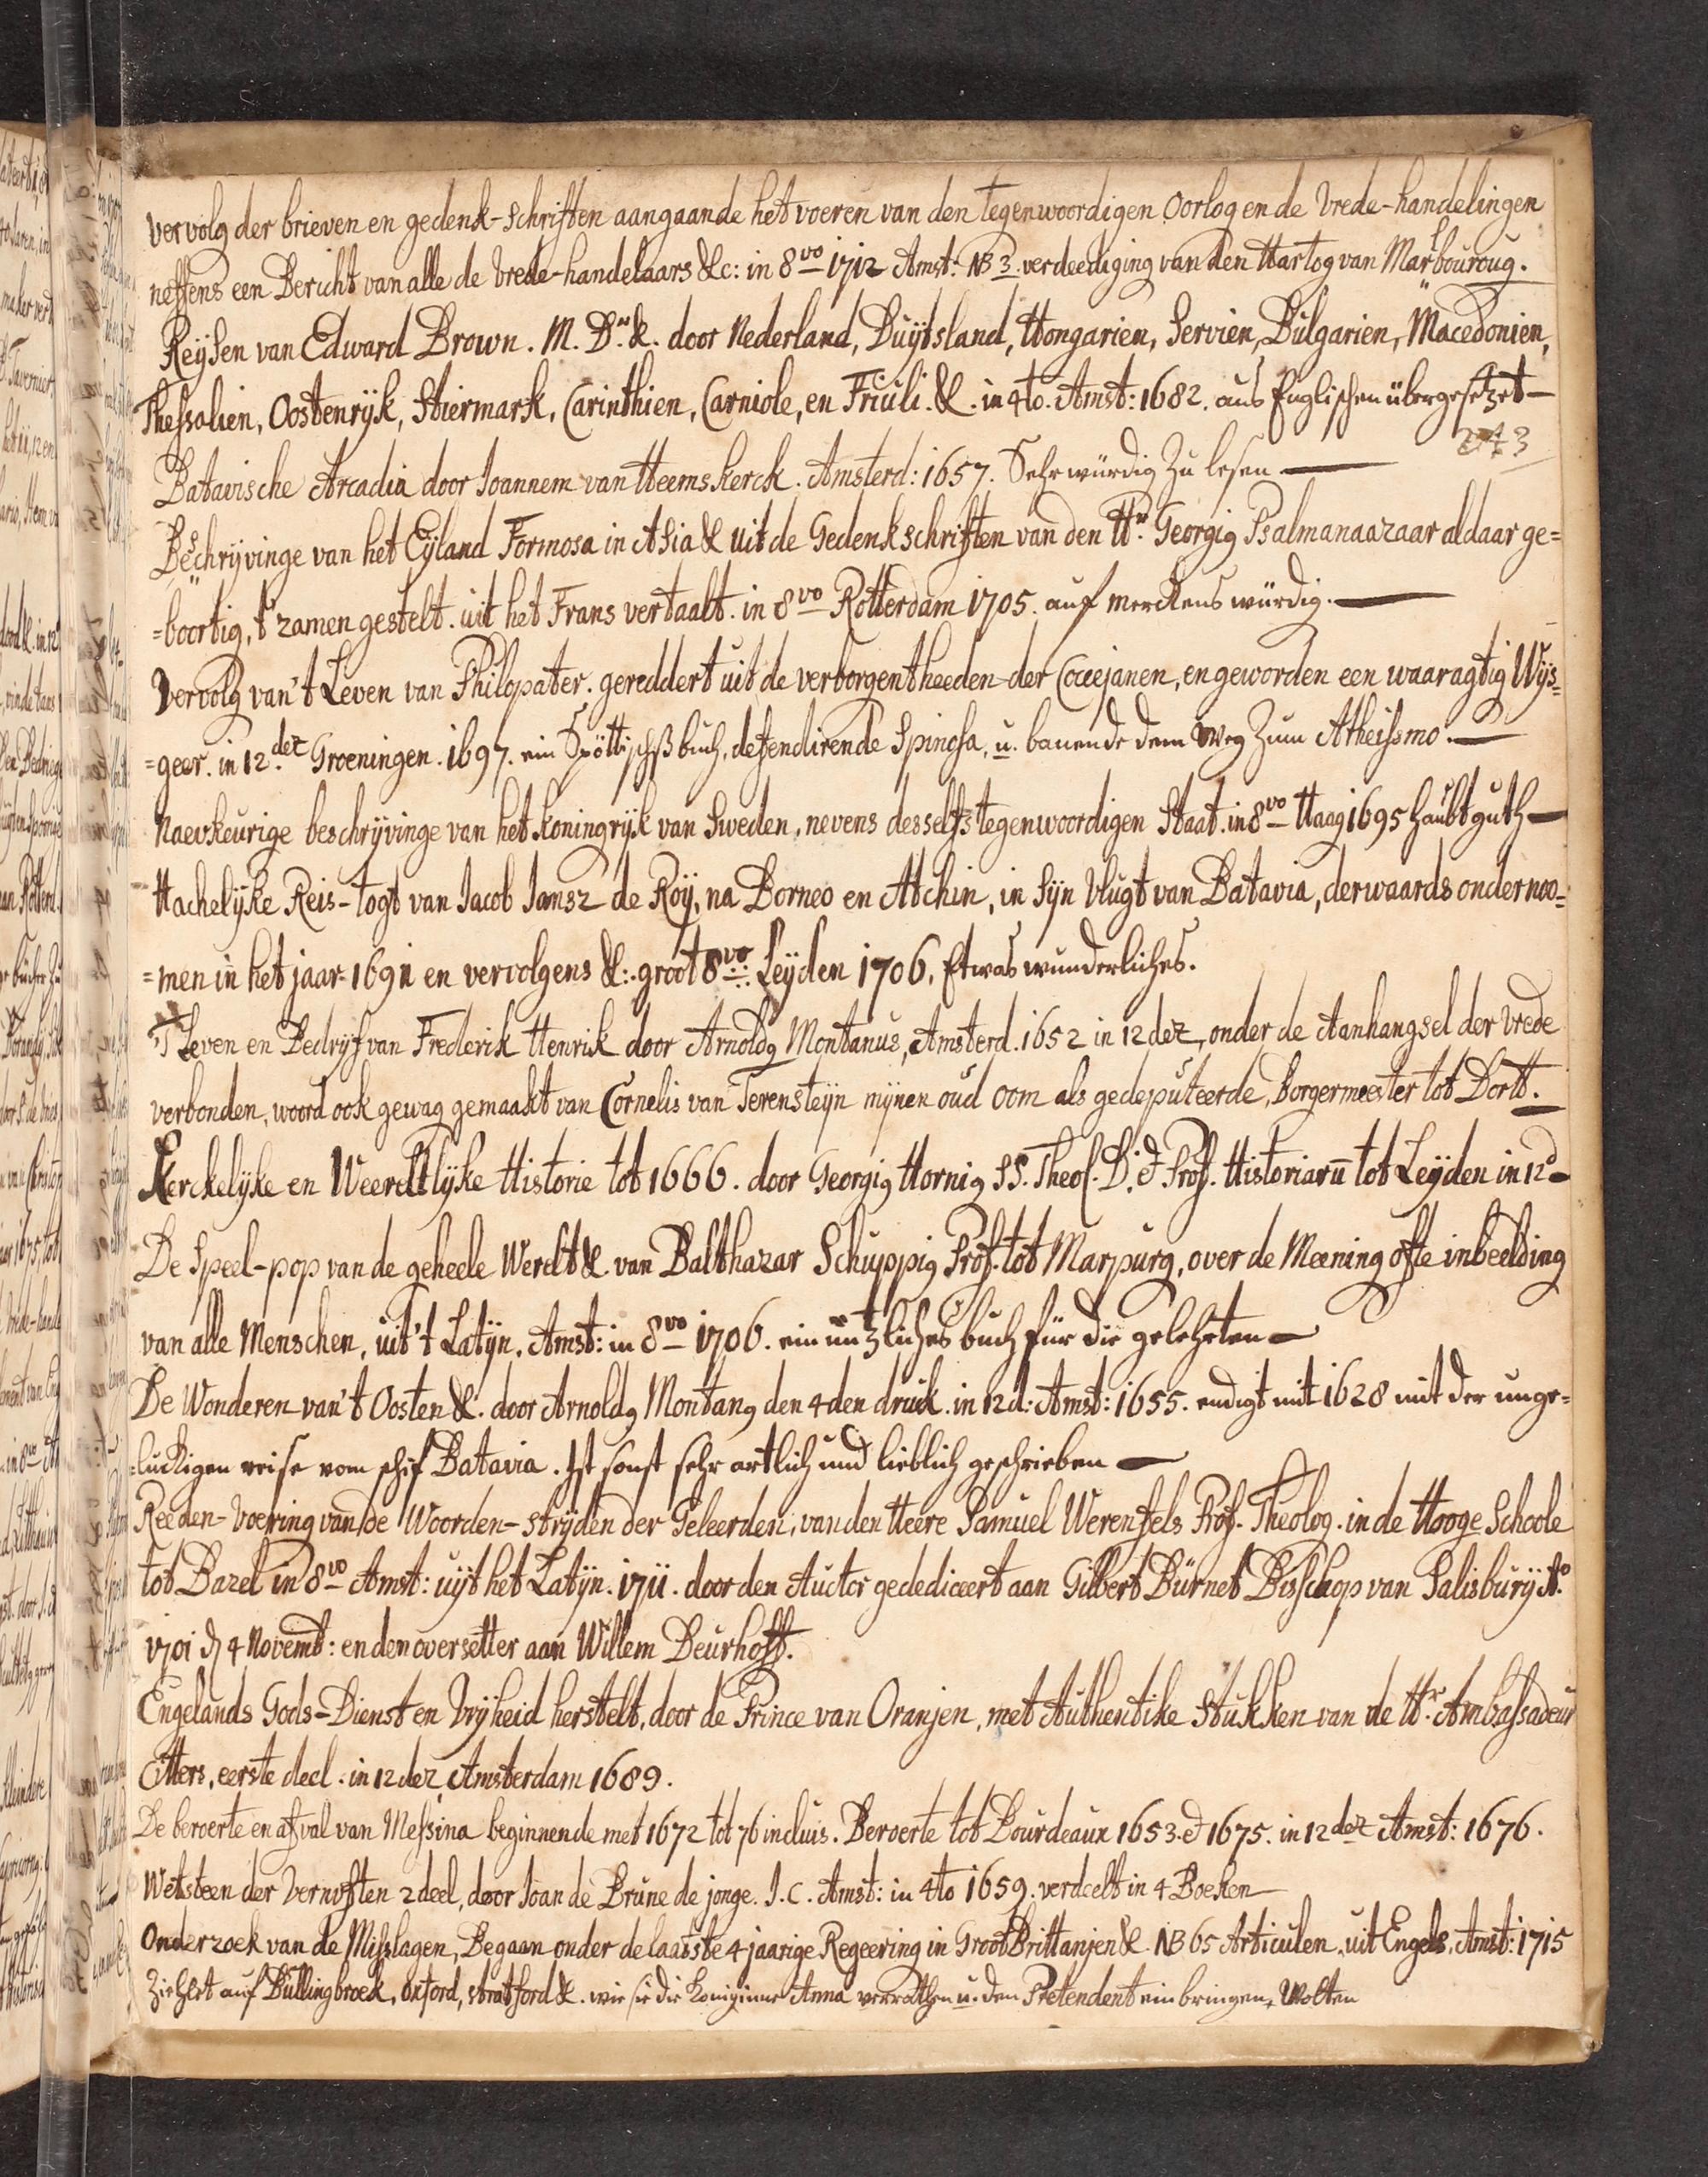 vervolg der brieven en gedenk-schriften aangaande het voeren van den tegenwoordigen Oorlog en de Vrede-handelingen
neffens een Bericht van alle de Vrede-handelaars &c: in 8vo 1712 Amst: NB 3. verdeediging van den Hartog van Marbouroug.
Reysen van Edward Brown. M. Dr. &. door Nederland, Duytsland, Hongarien, Servien, Bulgarien, Macedonien,
Thessalien, Oostenryk, Stiermark, Carinthien, Carniole, en Friuli. &. in 4to. Amst: 1682. aus Englischen übergesetzet —
Batavische Arcadia door Joannem van Heemskerck. Amsterd: 1657. Sehr würdig zu lesen —
Beschryvinge van het Eyland Formosa in Asia & uit de Gedenkschriften van den Hr. Georgig Psalmanaazaar aldaar ge=
=boortig, t'zamen gestelt. uit het Frans vertaalt. in 8vo Rotterdam 1705. auf merckens würdig. —
Vervolg van't Leven van Philopater. gereddert uit de verborgentheeden der Coccejanen, en geworden een waaragtig Wys=
=geer. in 12dez Groeningen. 1697. ein Spöttischß buch, defendirende Spinosa, u. bauende dem Weg zum Atheismo. —
Naevkeurige beschryvinge van het koningryk van Sweden, nevens desselfs tegenwoordigen Staat. in 8vo Haag 1695 haubtguth —
Hachelyke Reis-togt van Jacob Jansz de Roy, na Borneo en Atchin, in Syn Vlugt van Batavia, derwaards ondernoo=
=men in het jaar 1691 en vervolgens &: groot 8vo: Leyden 1706. Etwas wunderliches.
'T Leven en Bedryf van Frederik Henrik door Arnoldg Montanus, Amsterd. 1652 in 12dez, onder de Aanhangsel der Vrede
verbonden, woord ook gewag gemaakt van Cornelis van Terensteyn mynen oud oom als gedeputeerde, borgermeester tot Dortt.
Kerckelyke en Weereltlyke Historie tot 1666. door Georgig Hornig SS. Theol. D. & Prof. Historiarū tot Leyden in 12d —
De Speel-pop van de geheele Werelt & van Balthazar Schuppig Prof. tot Marpurg, over de Meening ofte inbeelding
van alle Menschen, uit't Latyn. Amst: in 8vo 1706. ein nützliches buch für die gelehrten —
De Wonderen van't Oosten &. door Arnoldg Montang den 4den druk. in 12d: Amst: 1655. endigt mit 1628 mit der unge=
=luckigen reise vom schif Batavia. Ist sonst sehr artlich und lieblich geschrieben —
Reeden-voering van de Woorden-stryden der Geleerden, van den Heere Samuel Werenfels Prof. Theolog. in de Hooge Schoole
tot Bazel in 8vo Amst: uyt het Latyn. 1711. door den Auctor gedediceert aan Gilbert Burnet Bisschop van Salisbury Ao.
1701 4 Novemb: en den oversetter aan Willem Deurhoff.
Engelands Gods-Dienst en Vryheid herstelt, door de Prince van Oranjen, met Authentike Stukken van de Hr. Ambassadeur
Citters, eerste deel. in 12dez Amsterdam 1689.
De beroerte en afval van Messina beginnende met 1672 tot 76 incluis. Beroerte tot Bourdeaux 1653. & 1675. in 12dez Amst: 1676.
Wetsteen der Vernuften 2 deel, door Joan de Brune de jonge. J.C. Amst: in 4to 1659. verdeelt in 4 Boeken —
Onderzoek van de Misslagen, Begaan onder de laatste 4 jaarige Regeering in Groot Brittanjen &. NB 65 Articulen, uit Engels, Amst: 1715
Ziehlet auf Bullingbroek, oxford, stratford &. wie sie die Koniginne Anna verrathen u. den Pretendent einbringen. Wolten